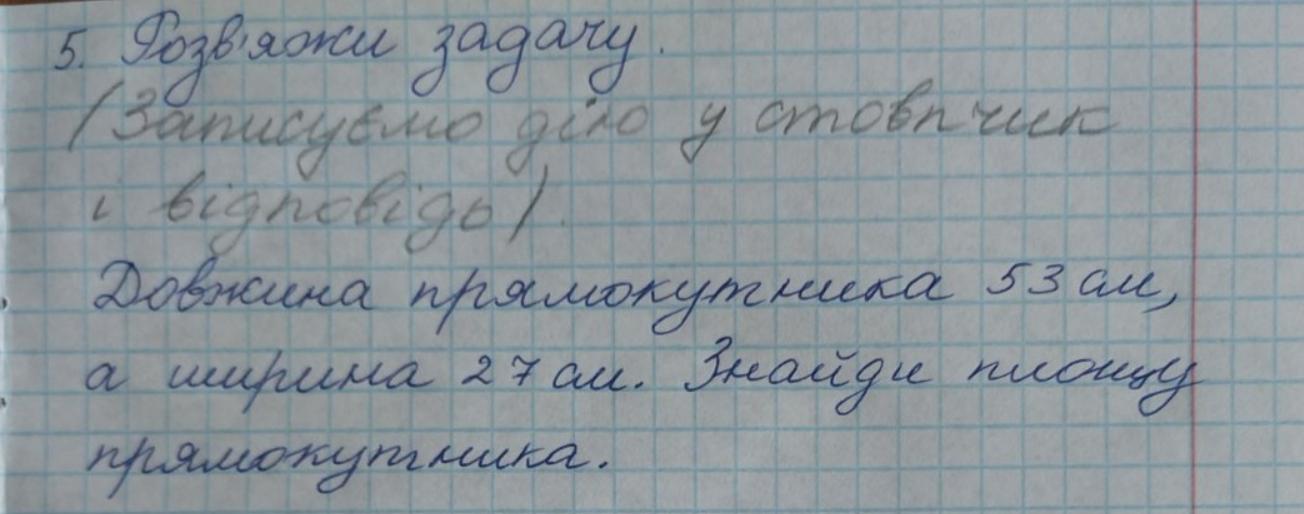 5. Розв'яжи задачу.
(Записуємо дію у стовпчик
і відповідь).
Довжина прямокутника 53 см,
а ширина 27 см. Знайди площу
прямокутника.